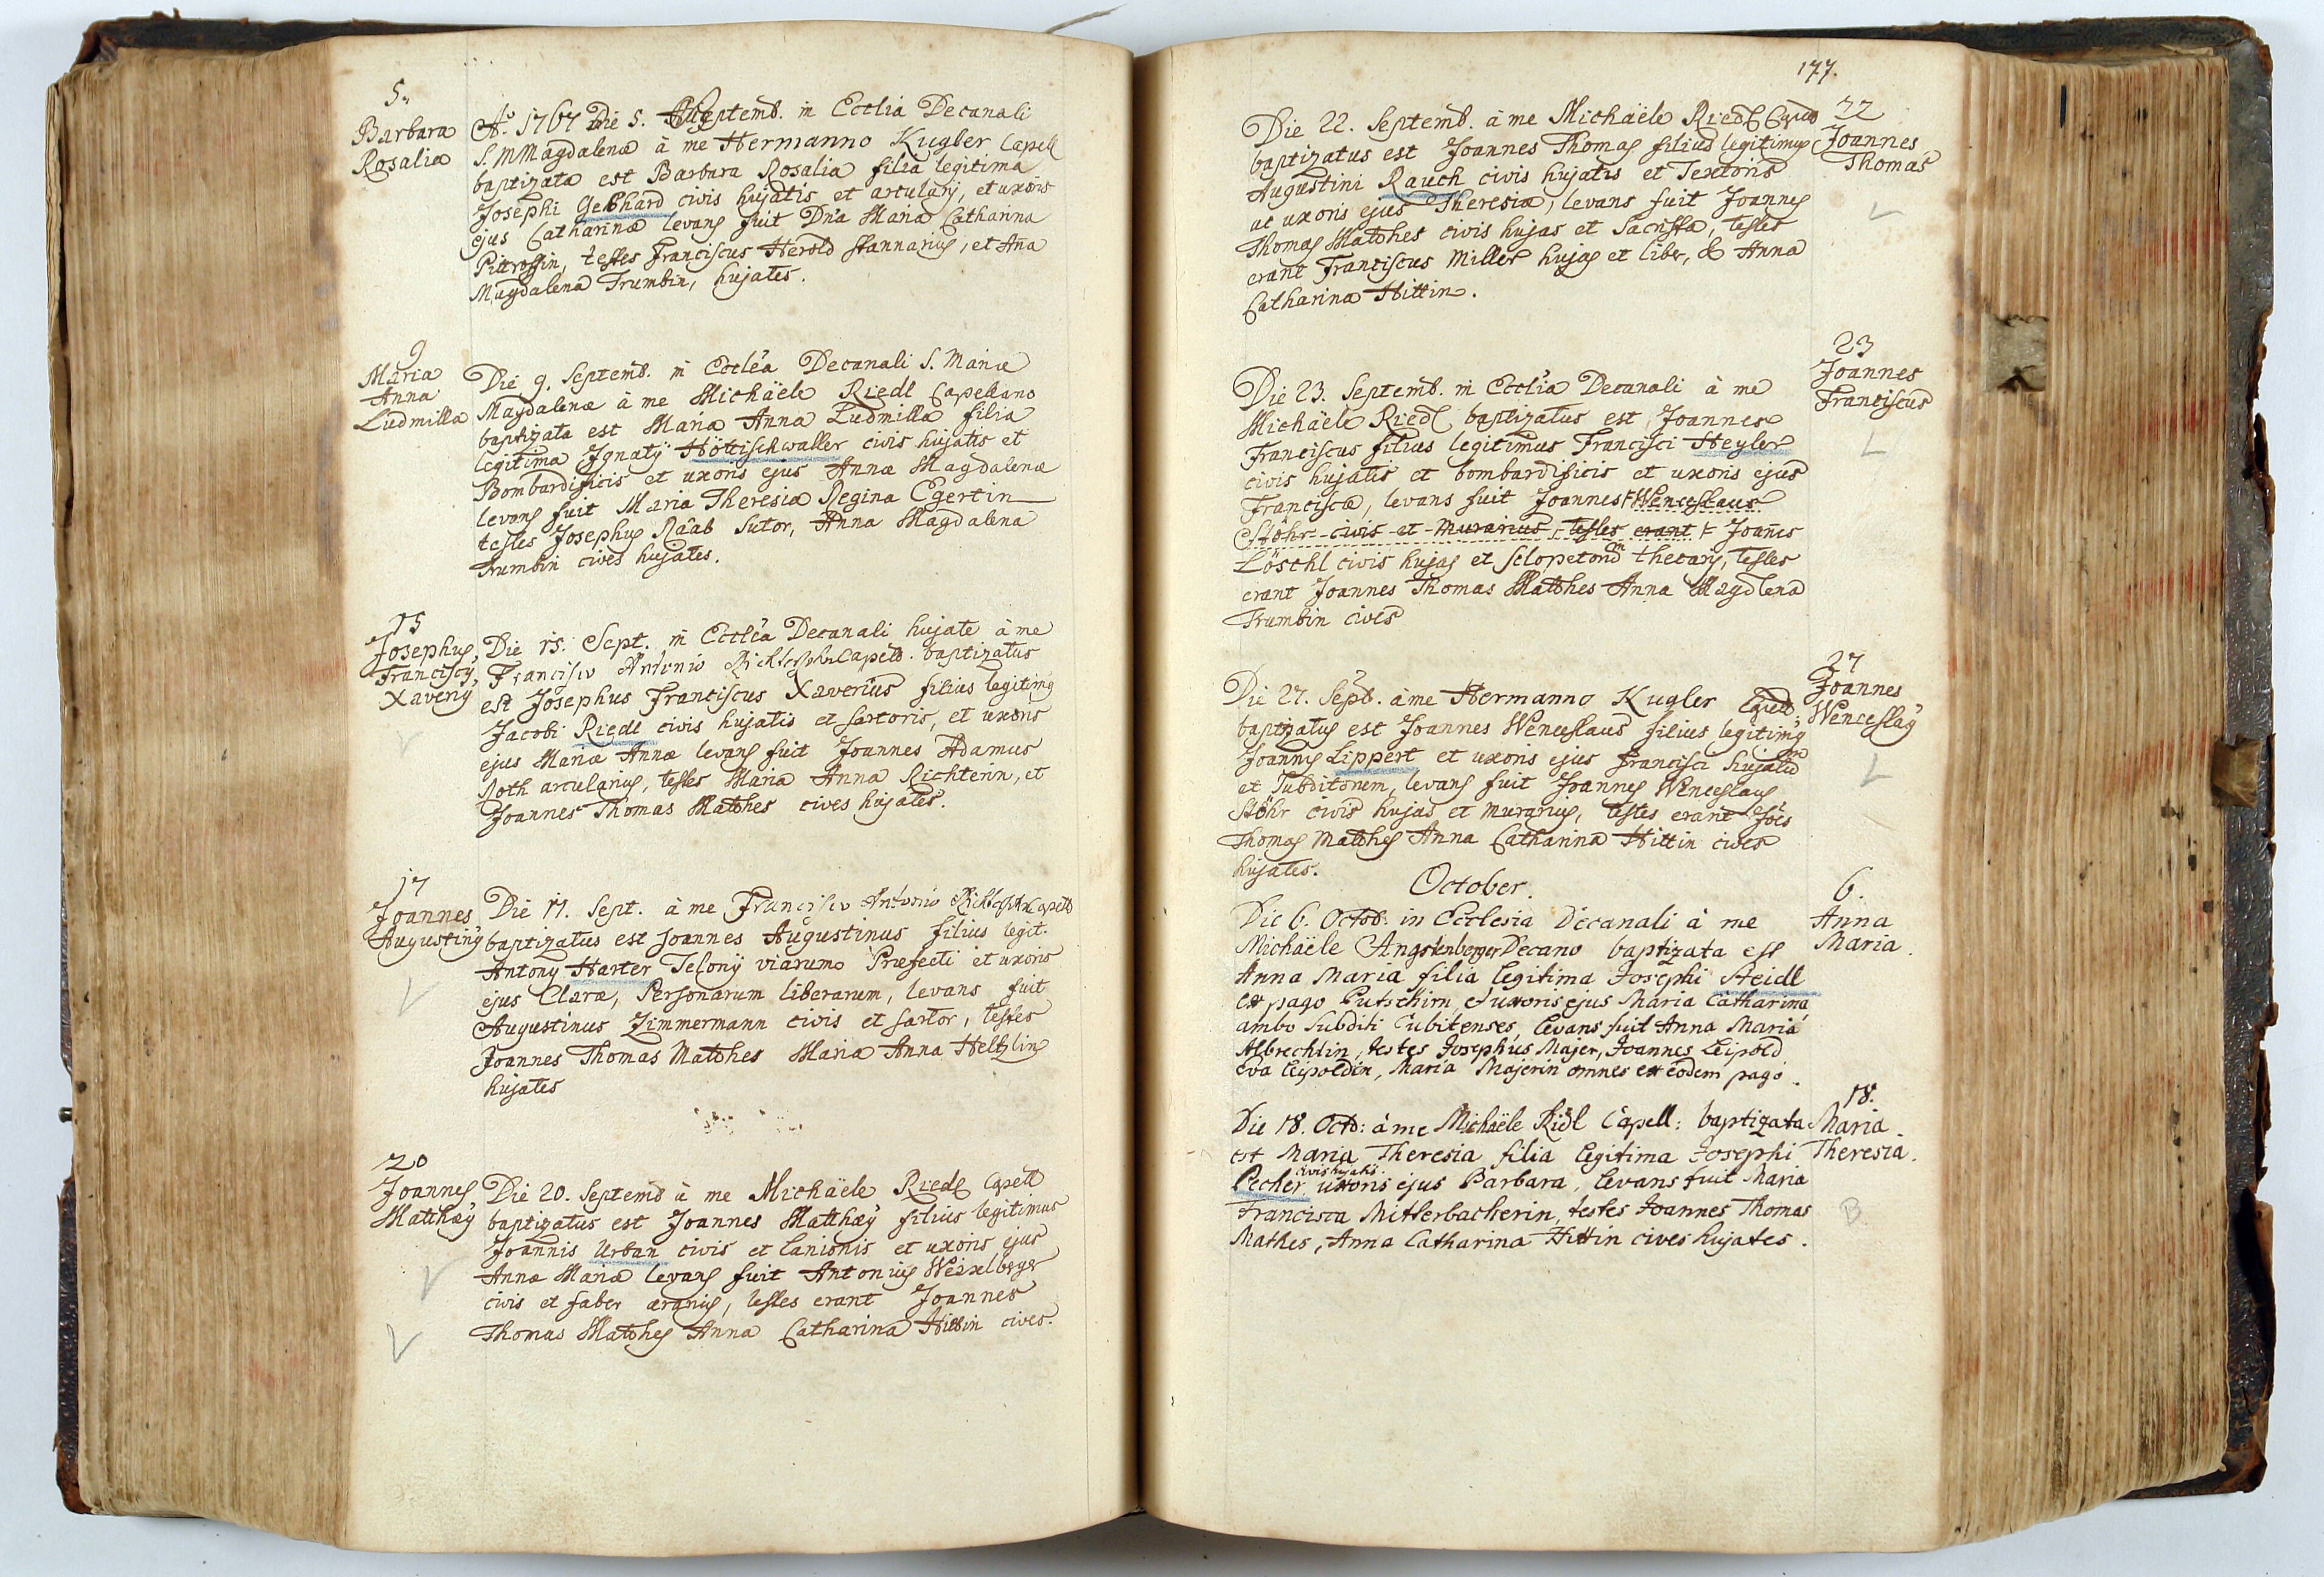 5.
Barbara
Rosalia
Aº. 1767 Die 5. Septemb. in Ecclia Decanali
S. MMagdalena à me Hermanno Kugler Capell
baptizata est Barbara Rosalia filia legitima
Josephi Gebhard civis hujatis et arcularÿ, et uxoris
ejus Catharinæ levans fuit Dna Maria Catharina
testes Franciscus Herold Stannarius, et Aña
Magdalena Trumbin, hujates.
9
Maria
Anna
Ludmilla
Die 9. Septemb. in Eccléa Decanali S. Mariæ
Magdalenæ à me Michäele Riedl Capellano
baptizata est Maria Anna Ludmilla filia
legitima Ignatÿ Höttischwaller civis hujatis et
Bombardificis et uxoris ejus Annæ Magdalenæ
levans fuit Maria Theresia Regina Egertin
testes Josephus Raab Sutor, Anna Magdalena
Trumbin cives hujates.
15
Josephus,
Franciscÿ,
Xaveriÿ
Die 15. Sept. in Eccléa Decanali hujate à me
Francisco Antonio Capell. baptizatus
est Josephus Franciscus Xaverius filius legitimus
Jacobi Riedl civis hujatis et sartoris, et uxoris
ejus Mariæ Annæ levans fuit Joannes Adamus
Roth arcularius, testes Maria Anna Richterin, et
Joannes Thomas Matthes cives hujates.
17
Joannes
Augustinÿ
Die 17. Sept. à me Francisco Antonio Capell
baptizatus est Joannes Augustinus filius legit.
Antonÿ Harter Telonÿ viarum Præfecti et uxoris
ejus Claræ, Personarum liberarum, levans fuit
Augustinus Zimmermann civis et sartor, testes
Joannes Thomas Matthes Maria Anna Heltzlin
hujates
20
Joannes
Matthæÿ
Die 20. Septemb à me Michäele Riedl Capell
baptizatus est Joannes Matthæÿ filius legitimus
Joannis Urban civis et Lanionis et uxoris ejus
Annæ Mariæ levans fuit Antonius Weixelberger
civis et faber ærarius, testes erant Joannes
Thomas Matthes Anna Catharina Hittin cives.
177.
Die 22. Septemb. à me Michäele Riedl Capell
baptizatus est Joannes Thomas filius legitimus
Augustini Rauch civis hujatis et Textoris
ac uxoris ejus Theresiæ, levans fuit Joannes
Thomas Matthes civis hujas et Sacrista, testes
erant Franciscus Miller hujas et liber, & Anna
Catharina Hittin.
22
Joannes
Thomas
Die 23. Septemb. in Ecclia Decanali à me
Michäele Riedl baptizatus est Joannes
Franciscus filius legitimus Francisci Heyler
civis hujatis et bombardificis et uxoris ejus
Franciscæ, levans fuit Joannes Wenceslaus
Stöhr civis et Murarius, testes erant Joañes
Löschl civis hujas et sclopetorum thecariÿ, testes
erant Joannes Thomas Matthes Anna Magdlena
Trumbin cives
23
Joannes
Franciscus
Die 27. Septb. à me Hermanno Kugler Capell.
baptizatus est Joannes Wenceslaus filius legitimÿ
Joannis Lippert et uxoris ejus Francisci hujatium
et Subditorum, levans fuit Joannes Wenceslaus
Stöhr civis hujas et Murarius, testes erant Jöes
Thomas Matthes Anna Catharina Hittin cives
hujates.
27
Joannes
Wenceslaÿ
October.
Die 6. Octob. in Ecclesia Decanali à me
Michäele Angstenberger Decano baptizata est
Anna Maria filia legitima Josephi Steidl
ex pago Putschirn et uxoris ejus Maria Catharina
ambo Subditi Cubitenses, levans fuit Anna Maria
Albrechtin, testes Josephus Majer, Joannes Leipold
Eva Leipoldin, Maria Majerin omnes ex eodem pago.
6.
Anna
Maria.
Die 18. Octb: à me Michäele Ridl Capell: baptizata
est Maria Theresia filia legitima Josephi
civis hujatis
Pecher uxoris ejus Barbara, levans fuit Maria
Francisca Mitterbacherin, testes Joannes Thomas
Mathes, Anna Catharina Hittin cives hujates.
18.
Maria
Theresia.
B